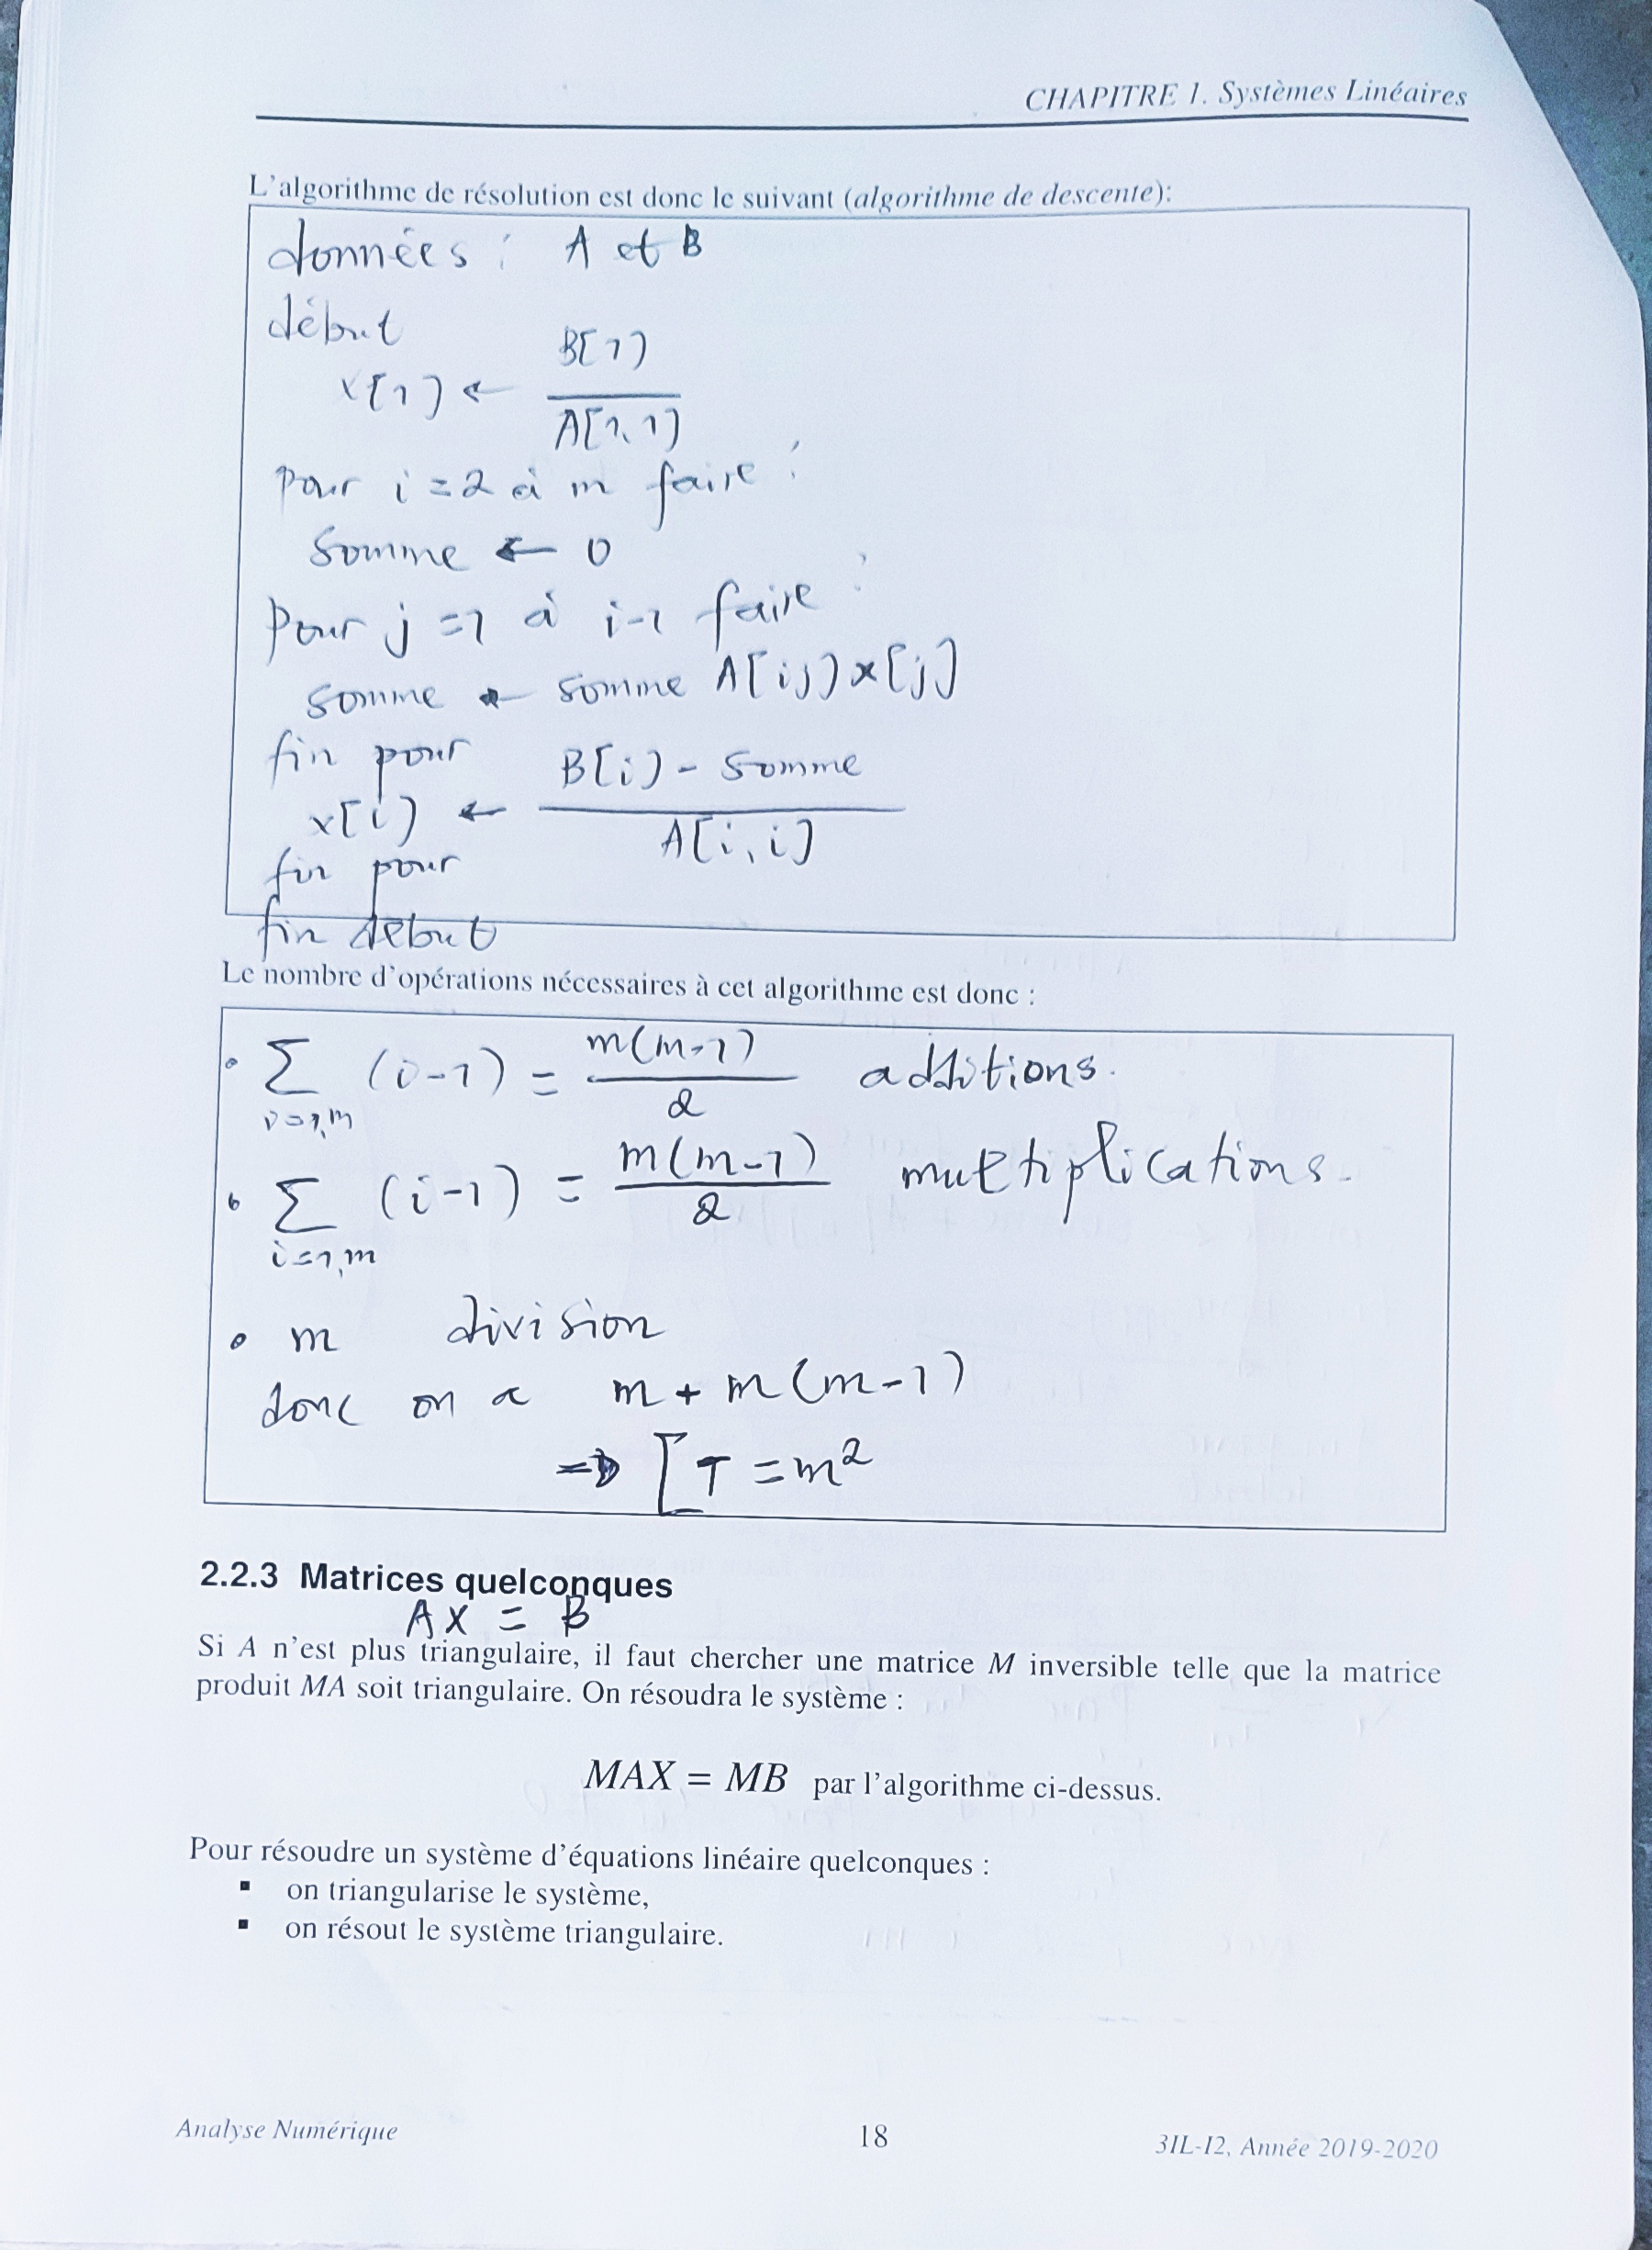 CHAPITRE 1. Systèmes Linéaires
L'algorithme de résolution est donc le suivant (algorithme de descente):
données : A et B
début
x[1] ← B[1] / A[1,1]
Pour i=2 à m faire :
Somme ← 0
Pour j=1 à i-1 faire :
somme ← somme A[ij] x[j]
fin pour
x[i] ← B[i] - Somme / A[i,i]
fin pour
fin debut
Le nombre d'opérations nécessaires à cet algorithme est donc :
• ∑ i=1,m (i-1) = m(m-1) / 2 additions.
• ∑ i=1,m (i-1) = m(m-1) / 2 multiplications.
• m division
donc on a m + m(m-1)
⇒ [T = m²
2.2.3 Matrices quelconques
AX = B
Si A n'est plus triangulaire, il faut chercher une matrice M inversible telle que la matrice
produit MA soit triangulaire. On résoudra le système :
MAX = MB par l'algorithme ci-dessus.
Pour résoudre un système d'équations linéaire quelconques :
▪ on triangularise le système,
▪ on résout le système triangulaire.
Analyse Numérique 18 3IL-I2, Année 2019-2020